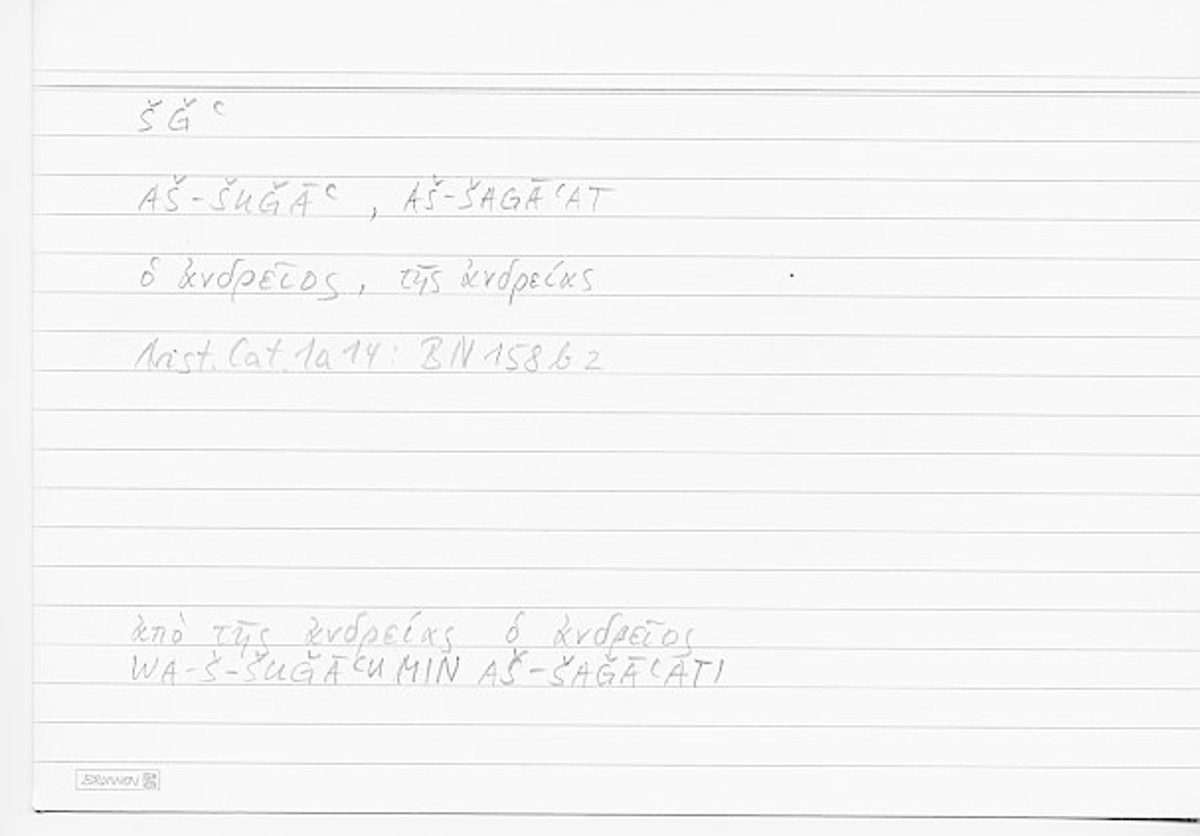 ŠĞʿ
AŠ-ŠUĞĀʿ, AŠ-ŠAGĀʿAT
ὁ ἀνδρεῖος, τῆς ἀνδρείας
Arist. Cat. 1a 14: BN 158 b 2
ἀπὸ τῆς ἀνδρείας ὁ ἀνδρεῖος
WA-Š-ŠUĞĀʿU MIN AŠ-ŠAĞĀʿATI
BRUNNEN